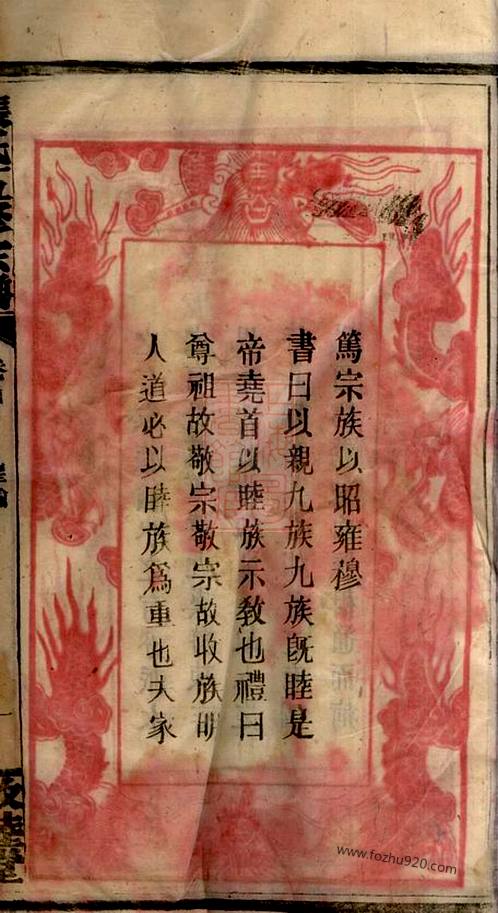 篤宗族以昭雍穆
書曰以親九族九族旣睦是
帝堯首以睦族示敎也禮曰
尊祖故敬宗敬宗故收族明
人道必以睦族爲重也夫家
www.fozhu920.com